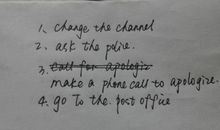 1. change the channel
2. ask the police.
3. Call for apologiz
make a phone call to apologize.
4. go to the post office